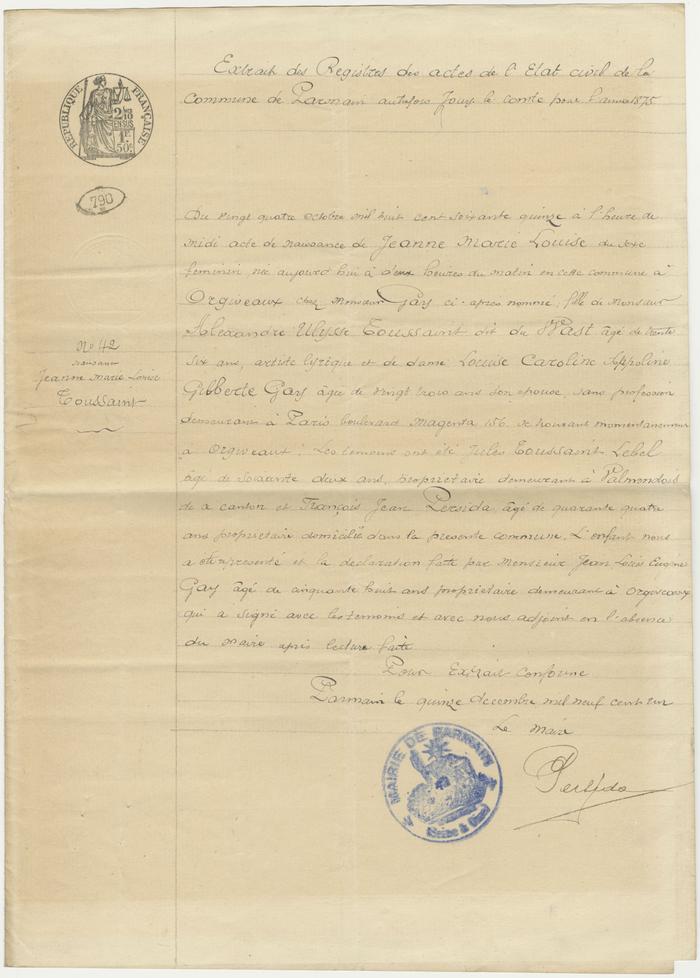 Extrait des Registres des actes de l'Etat civil de la
Commune de Parmain autrefois Jouy le comte pour l'année 1875
RÉPUBLIQUE FRANÇAISE
2/10 EN SUS
1F 50c
790
Du vingt quatre octobre mil huit cent soixante quinze à l'heure de
midi acte de naissance de Jeanne Marie Louise du sexe
feminin, née aujourd'hui à deux heures du matin en cette commune à
Orgiveaux chez Monsieur Gay ci-apres nommé, fille de Monsieur
Alexandre Ulysse Toussaint dit du Wast âgé de trente
six ans, artiste lyrique et de dame Louise Caroline Appoline
Gilberte Gay âgée de vingt trois ans son epouse, sans profession
demeurant à Paris boulevard Magenta 156. se trouvant momentanement
à Orgiveaux. Les temoins ont été Jules Toussaint Lebel
âgé de soixante deux ans, propriétaire demeurant à Valmondois
de a canton et François Jean Persida, âgé de quarante quatre
ans propriétaire domicilié dans la presente commune. L'enfant nous
a été représenté et la déclaration faite par Monsieur Jean Louis Eugène
Gay âgé de cinquante huit ans propriétaire demeurant à Orgiveaux
qui a signé avec les temoins et avec nous adjoint en l'absence
du Maire après lecture faite
N° 42
naissance
Jeanne Marie Louise
Toussaint
Pour Extrait conforme
Parmain le quinze décembre mil neuf cent un
Le Maire
Persida
MAIRIE DE PARMAIN
(Seine & Oise)